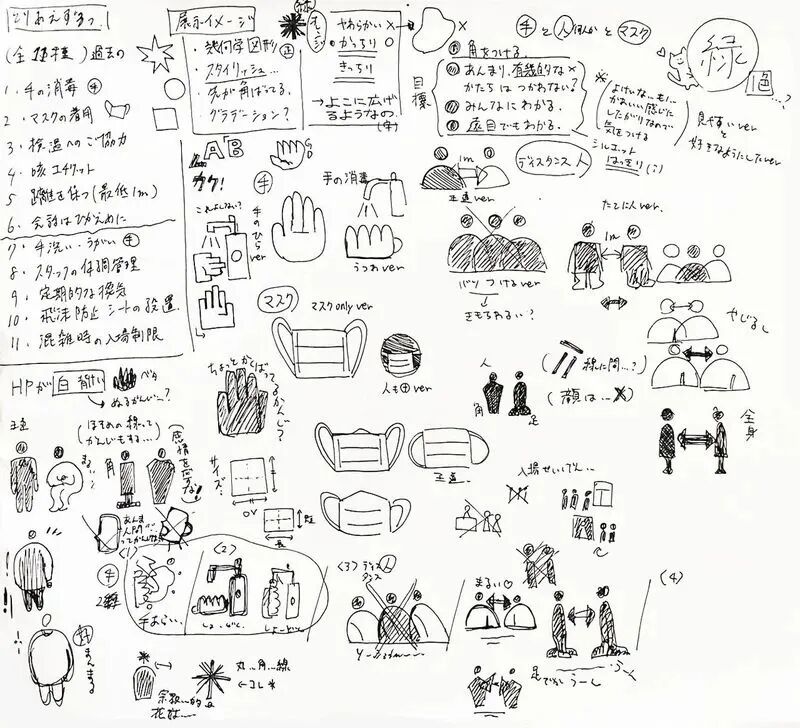 とりあえずっ!
(全11種) 過去の
1. 手の消毒 手
2. マスクの着用
3. 検温へのご協力
4. 咳エチケット
5. 距離を保つ(最低1m)
6. 会話はひかえめに
7. 手洗い・うがい 手
8. スタッフの体調管理
9. 定期的な換気
10. 飛沫防止シートの設置
11. 混雑時の入場制限
展示イメージ
・幾何学図形 正
・スタイリッシュ…
・先が角ばってる。
・グラデーション?
やわらかい ×
かっちり ○
きっちり
→よこに広げ
るようなの
手 と 人 何んか と マスク
目標
角をつける。
あんまり、有機的な×
かたちはつかわない?
みんなにわかる。
遠目でもわかる。
緑
1色…?
よけいな…も…
かわいい感じに
したがりなので
気をつける
シルエット
はっきり
見やすいver
と
好きなようにしたver
AB
手
手のひらver
手の消毒
うつわver
ディスタンス 人
1m
正直ver
バツつけるver
きもちわるい?
たてに人ver.
1m
やじるし
マスク
マスク only ver
人も⊕ver
人
角
足
(線に間…?)
(顔は…×)
全身
HPが 白 青けい
ベタ
→ぬるかんじ…?
正直
まるい
角
(ほそめの線って
かんじもする…)
ちょっとかくばってるかんじ?
サイズ…
ov
正直.
入場せいげん…
〈1〉
手
2種
手あらい…
〈2〉
しょーどく
〈3〉 ディスタンス 人
まるい♡
〈4〉
足でかい うーん うーん
まんまる
丸…角…線
←コレ*
宗教…的な